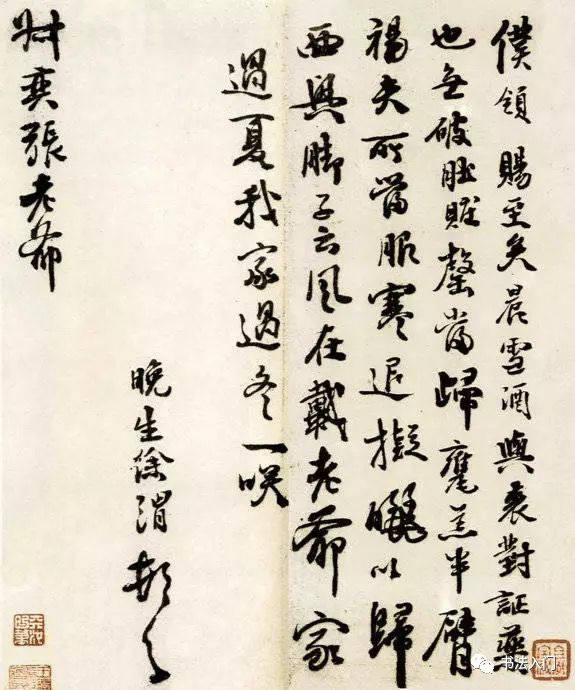 僕領賜至矣晨雪酒與裘對証藥
也無破肚賍罄當歸甕羔半臂
褐夫所當服寒退擬曬以歸
西興脚子云風在戴老爺家
過夏我家過冬一咲
晚生徐渭頓首
張老爺
书法入门